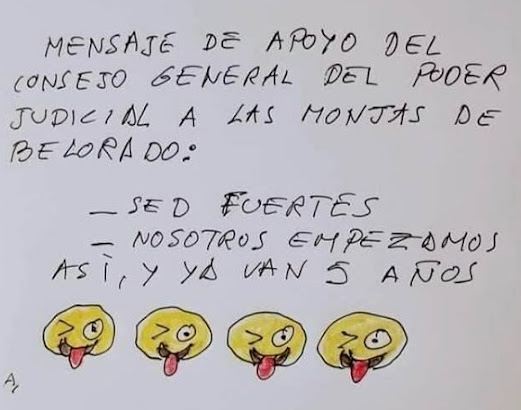 MENSAJE DE APOYO DEL
CONSEJO GENERAL DEL PODER
JUDICIAL A LAS MONJAS DE
BELORADO:
— SED FUERTES
— NOSOTROS EMPEZAMOS
ASÌ, Y YA VAN 5 AÑOS